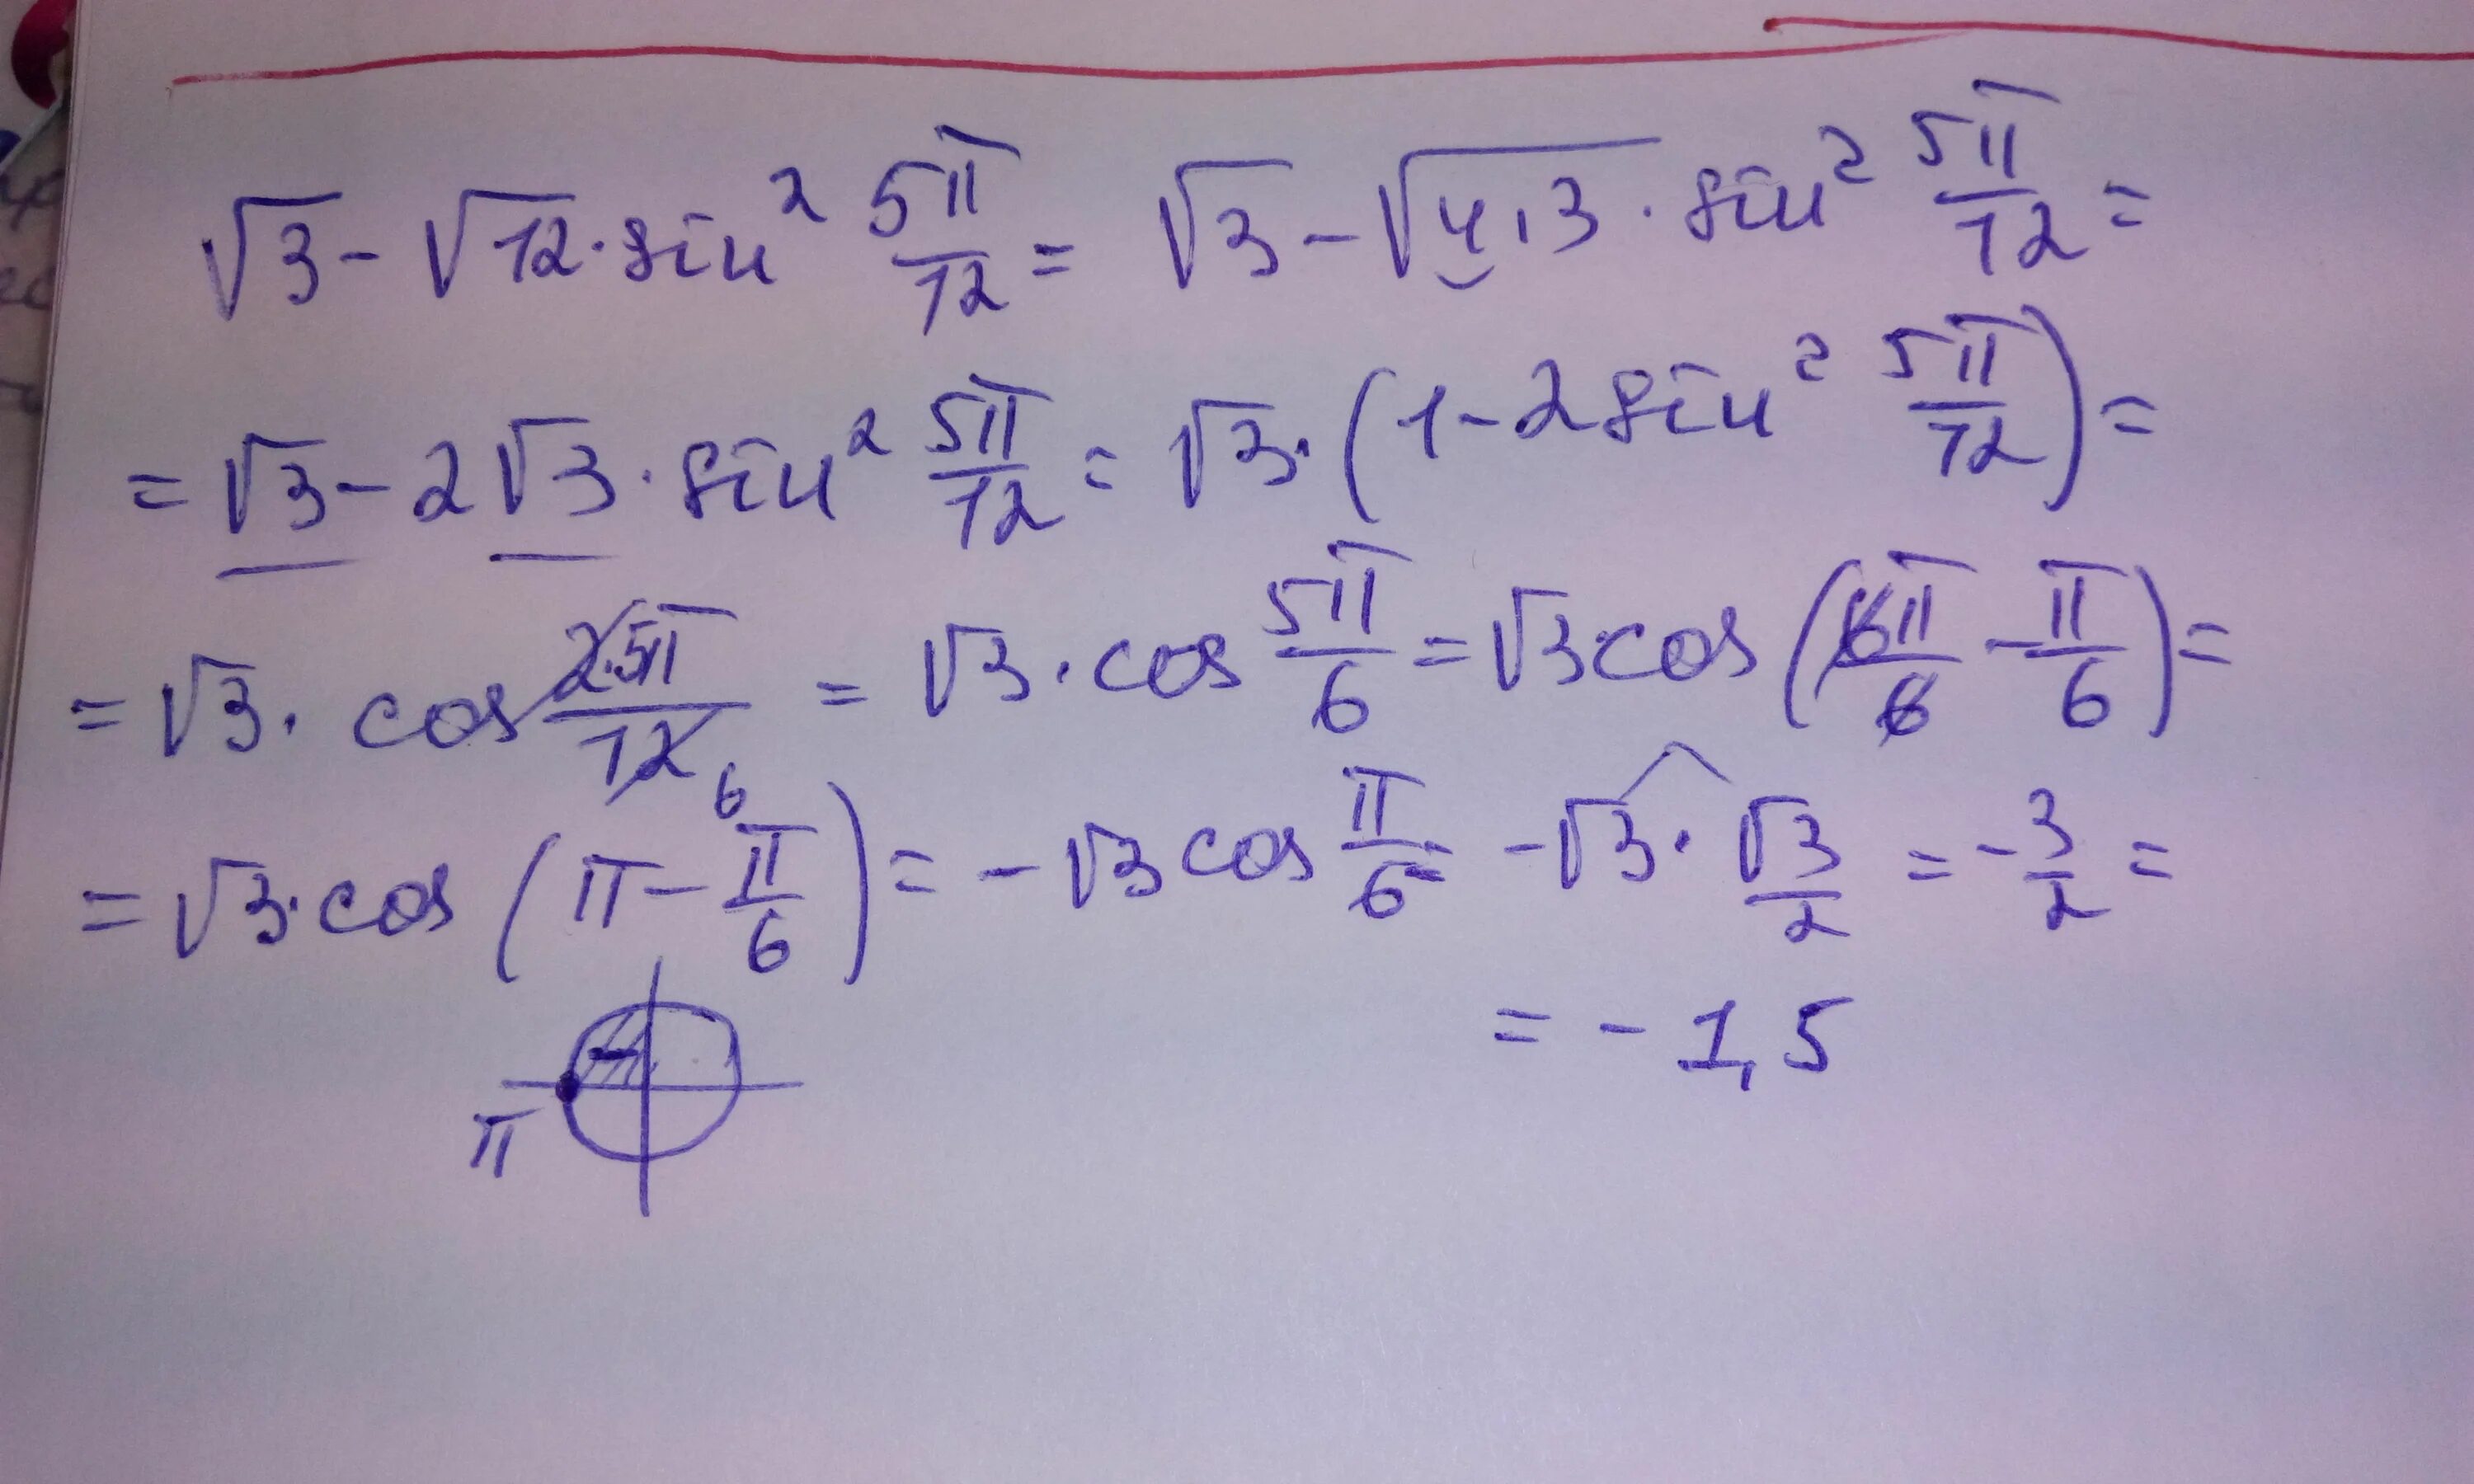 √3 - √12 · sin² 5π/12 = √3 - √4·3 · sin² 5π/12 =
= √3 - 2√3 · sin² 5π/12 = √3 · (1 - 2 sin² 5π/12) =
= √3 · cos 2·5π/12 6 = √3 · cos 5π/6 = √3 · cos (6π/6 - π/6) =
= √3 · cos (π - π/6) = - √3 cos π/6 = - √3 · √3/2 = - 3/2 =
= - 1,5
π